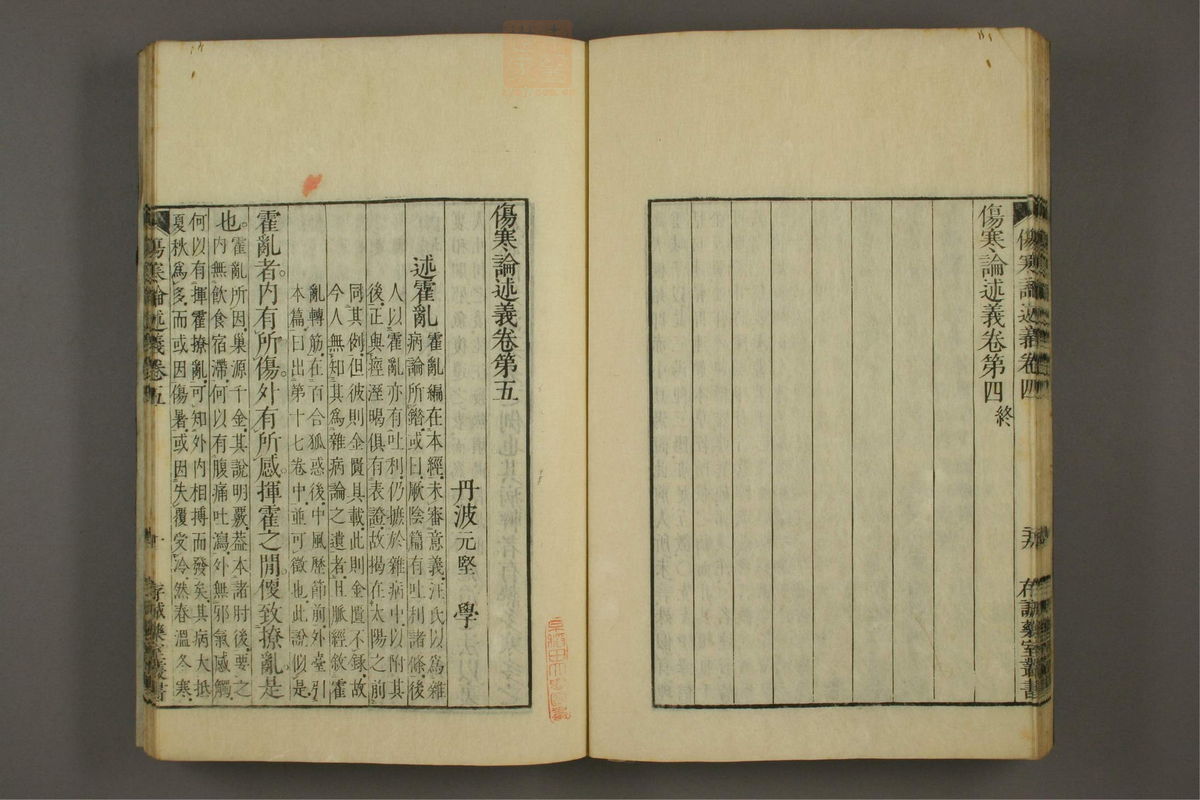 傷寒論述義卷四
存誠藥室叢書
傷寒論述義卷第四 終
傷寒論述義卷第五
丹波元堅 學
述霍亂 霍亂編在本經未審意義汪氏以爲雜
病論所
或曰厥陰篇有吐利諸條後
人以霍亂亦有吐利仍摭於雜病中以附其
後正與痙溼暍俱有表證故揭在太陽之前
同其例但彼則金匱具載此則金匱不錄故
今人無知其爲雜病論之遺者且脈經敘霍
亂轉筋在百合狐惑後中風歷節前外臺引
本篇曰出第十七卷中並可徵也此說似是
霍亂者。內有所傷。外有所感。揮霍之閒。傻致撩亂。是
也。霍亂所因巢源千金其說明覈蓋本諸肘後要之
內無飲食宿滯何以有腹痛吐瀉外無邪氣感觸
何以有揮霍撩亂可知外內相搏而發矣其病大抵
夏秋爲多而或因傷暑或因失覆受冷然春溫冬寒
傷寒論述義卷五
一
存誠藥室叢書